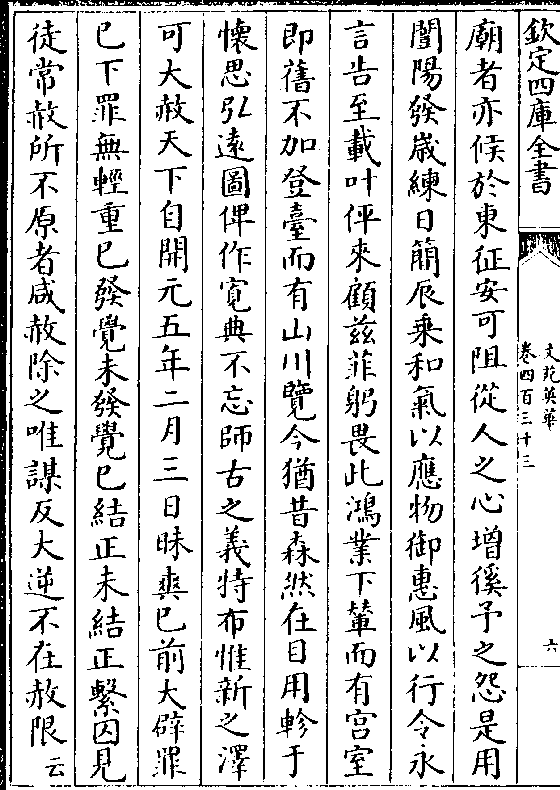 欽定四庫全書
文苑英華
卷四百三十三
六
廟者亦候於東征安可阻從人之心增徯予之怨是用
闓陽發歲練日簡辰乗和氣以應物御惠風以行令永
言告至載叶伻來顧兹菲躬畏此鴻業下輦而有宫室
即舊不加登臺而有山川覽今猶昔森然在目用軫于
懷思弘遠圖俾作寛典不忘師古之義特布惟新之澤
可大赦天下自開元五年二月三日昧爽已前大辟罪
已下罪無輕重已發覺未發覺已結正未結正繫囚見
徒常赦所不原者咸赦除之唯謀反大逆不在赦限云